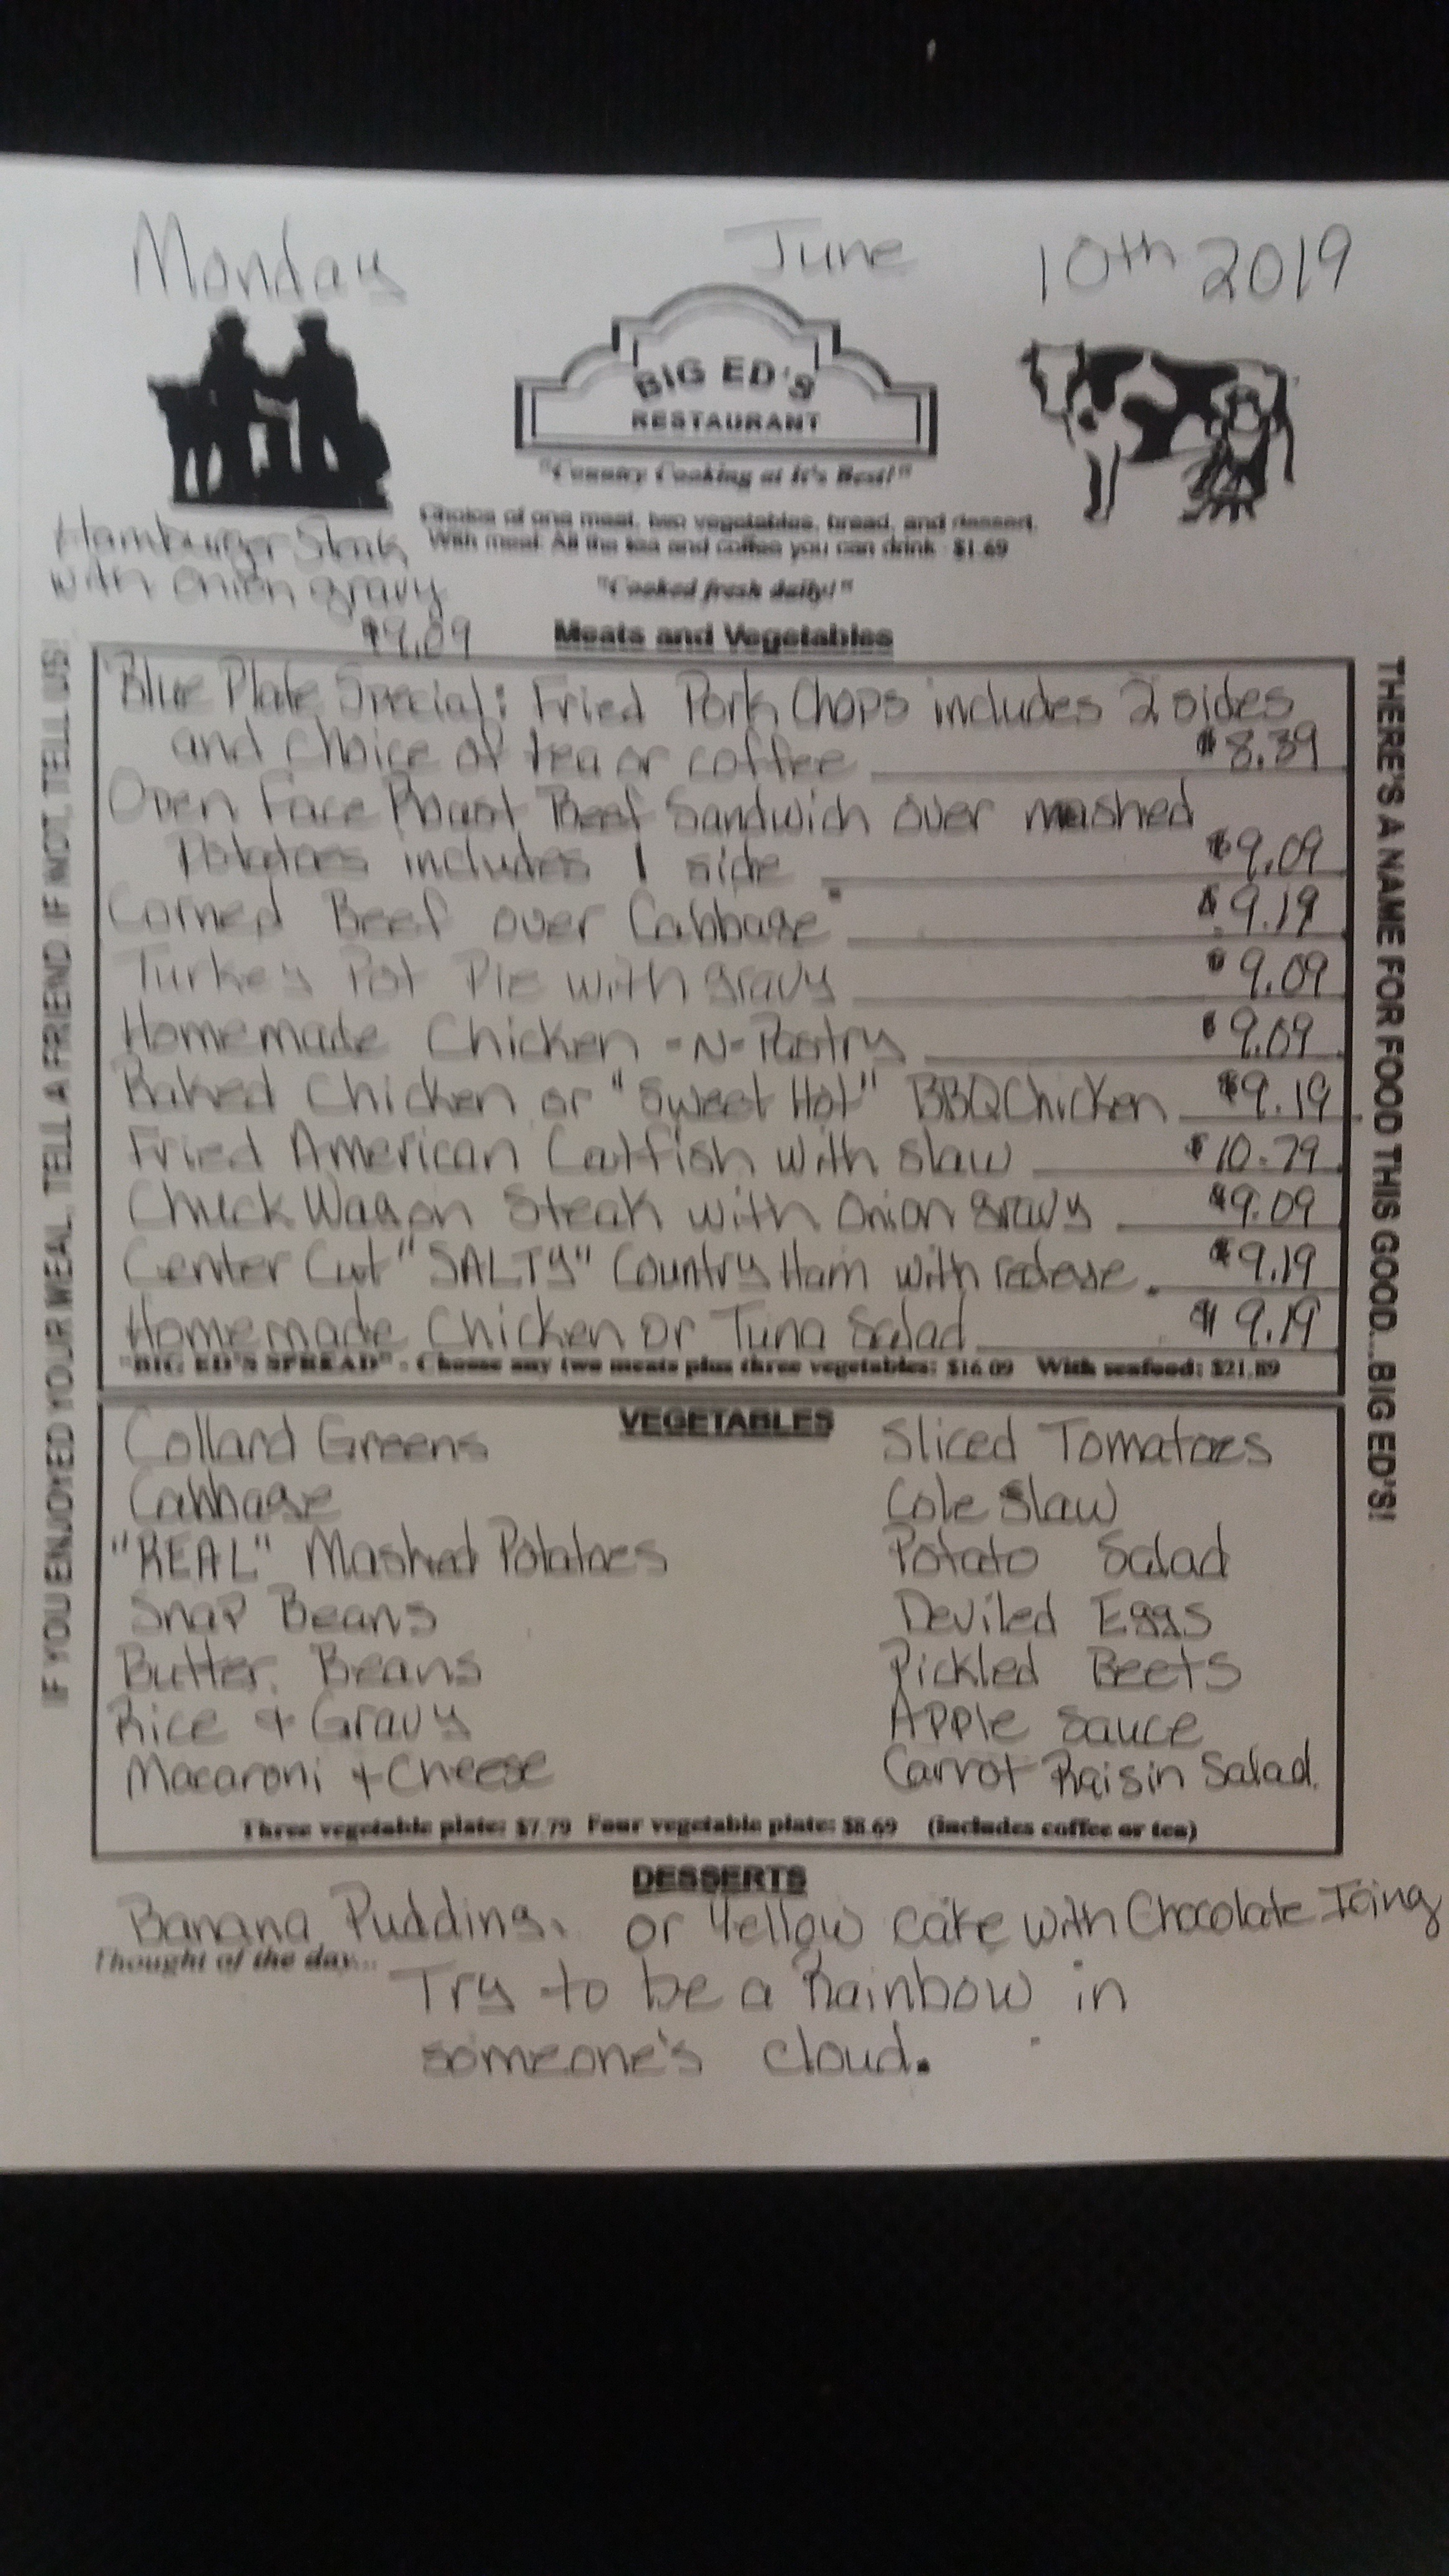 Monday June 10th 2019
BIG ED'S
RESTAURANT
"Country Cooking at It's Best!"
Choice of one meat, two vegetables, bread, and dessert.
With meal: All the tea and coffee you can drink - $1.69
"Cooked fresh daily!"
Hamburger Steak
with onion gravy
$9.09
Meats and Vegetables
Blue Plate Special: Fried Pork Chops includes 2 sides
and choice of tea or coffee $8.39
Open Face Roast Beef Sandwich over mashed
Potatoes includes 1 side $9.09
Corned Beef over Cabbage $9.19
Turkey Pot Pie with gravy $9.09
Homemade Chicken -N- Pastry $9.09
Baked Chicken or "Sweet Hot" BBQ Chicken $9.19
Fried American Catfish with slaw $10.79
Chuck Wagon Steak with Onion gravy $9.09
Center Cut "SALTY" Country Ham with redeye $9.19
Homemade Chicken or Tuna Salad $9.19
"BIG ED'S SPREAD" - Choose any two meats plus three vegetables: $16.09 With seafood: $21.89
VEGETABLES
Collard Greens
Cabbage
"REAL" Mashed Potatoes
Snap Beans
Butter Beans
Rice + Gravy
Macaroni + Cheese
Sliced Tomatoes
Cole Slaw
Potato Salad
Deviled Eggs
Pickled Beets
Apple Sauce
Carrot Raisin Salad
Three vegetable plate: $7.79 Four vegetable plate: $8.69 (includes coffee or tea)
DESSERTS
Banana Pudding or Yellow Cake with Chocolate Icing
Thought of the day...
Try to be a Rainbow in
someone's cloud.
IF YOU ENJOYED YOUR MEAL, TELL A FRIEND. IF NOT, TELL US!
THERE'S A NAME FOR FOOD THIS GOOD...BIG ED'S!